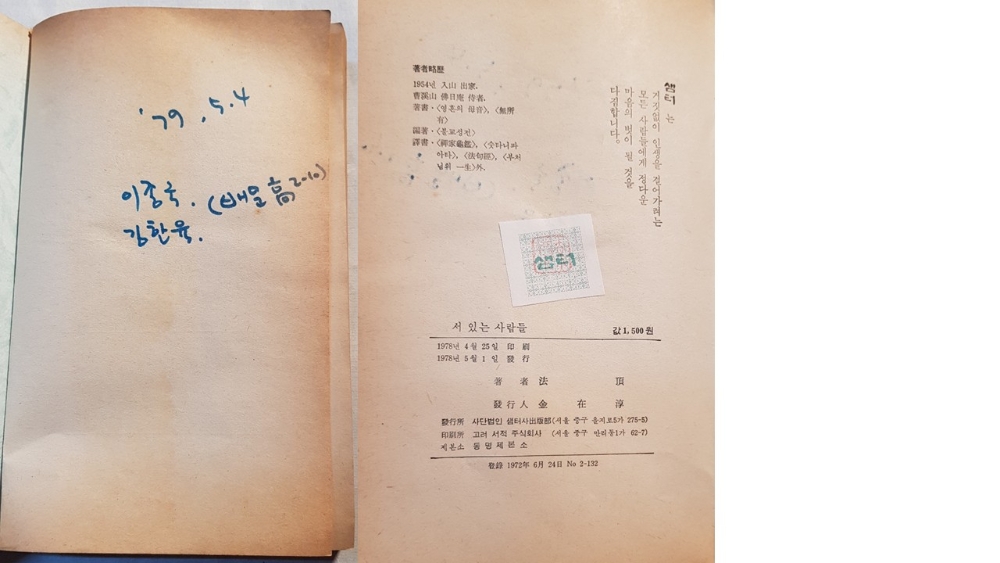 '79. 5. 4
이종국. (배문高 2-10)
김한육.
著者略歷
1954년 入山 出家.
曹溪山 佛日庵 侍者.
著書·〈영혼의 母音〉, 〈無所
有〉
編著·〈불교성전〉
譯書·〈禪家龜鑑〉, 〈숫타니파
아타〉, 〈法句經〉, 〈부처
님의 一生〉外.
샘터는
거짓없이 인생을 걸어가려는
모든 사람들에게 정다운
마음의 벗이 될 것을
다짐합니다.
샘터
서 있는 사람들 값 1,500원
1978년 4월 25일 印刷
1978년 5월 1일 發行
著者 法頂
發行人 金在淳
發行所 사단법인 샘터사出版部 (서울 중구 을지로5가 275-5)
印刷所 고려 서적 주식회사 (서울 중구 만리동1가 62-7)
제본소 동명제본소
登錄 1972年 6月 24日 No 2-132